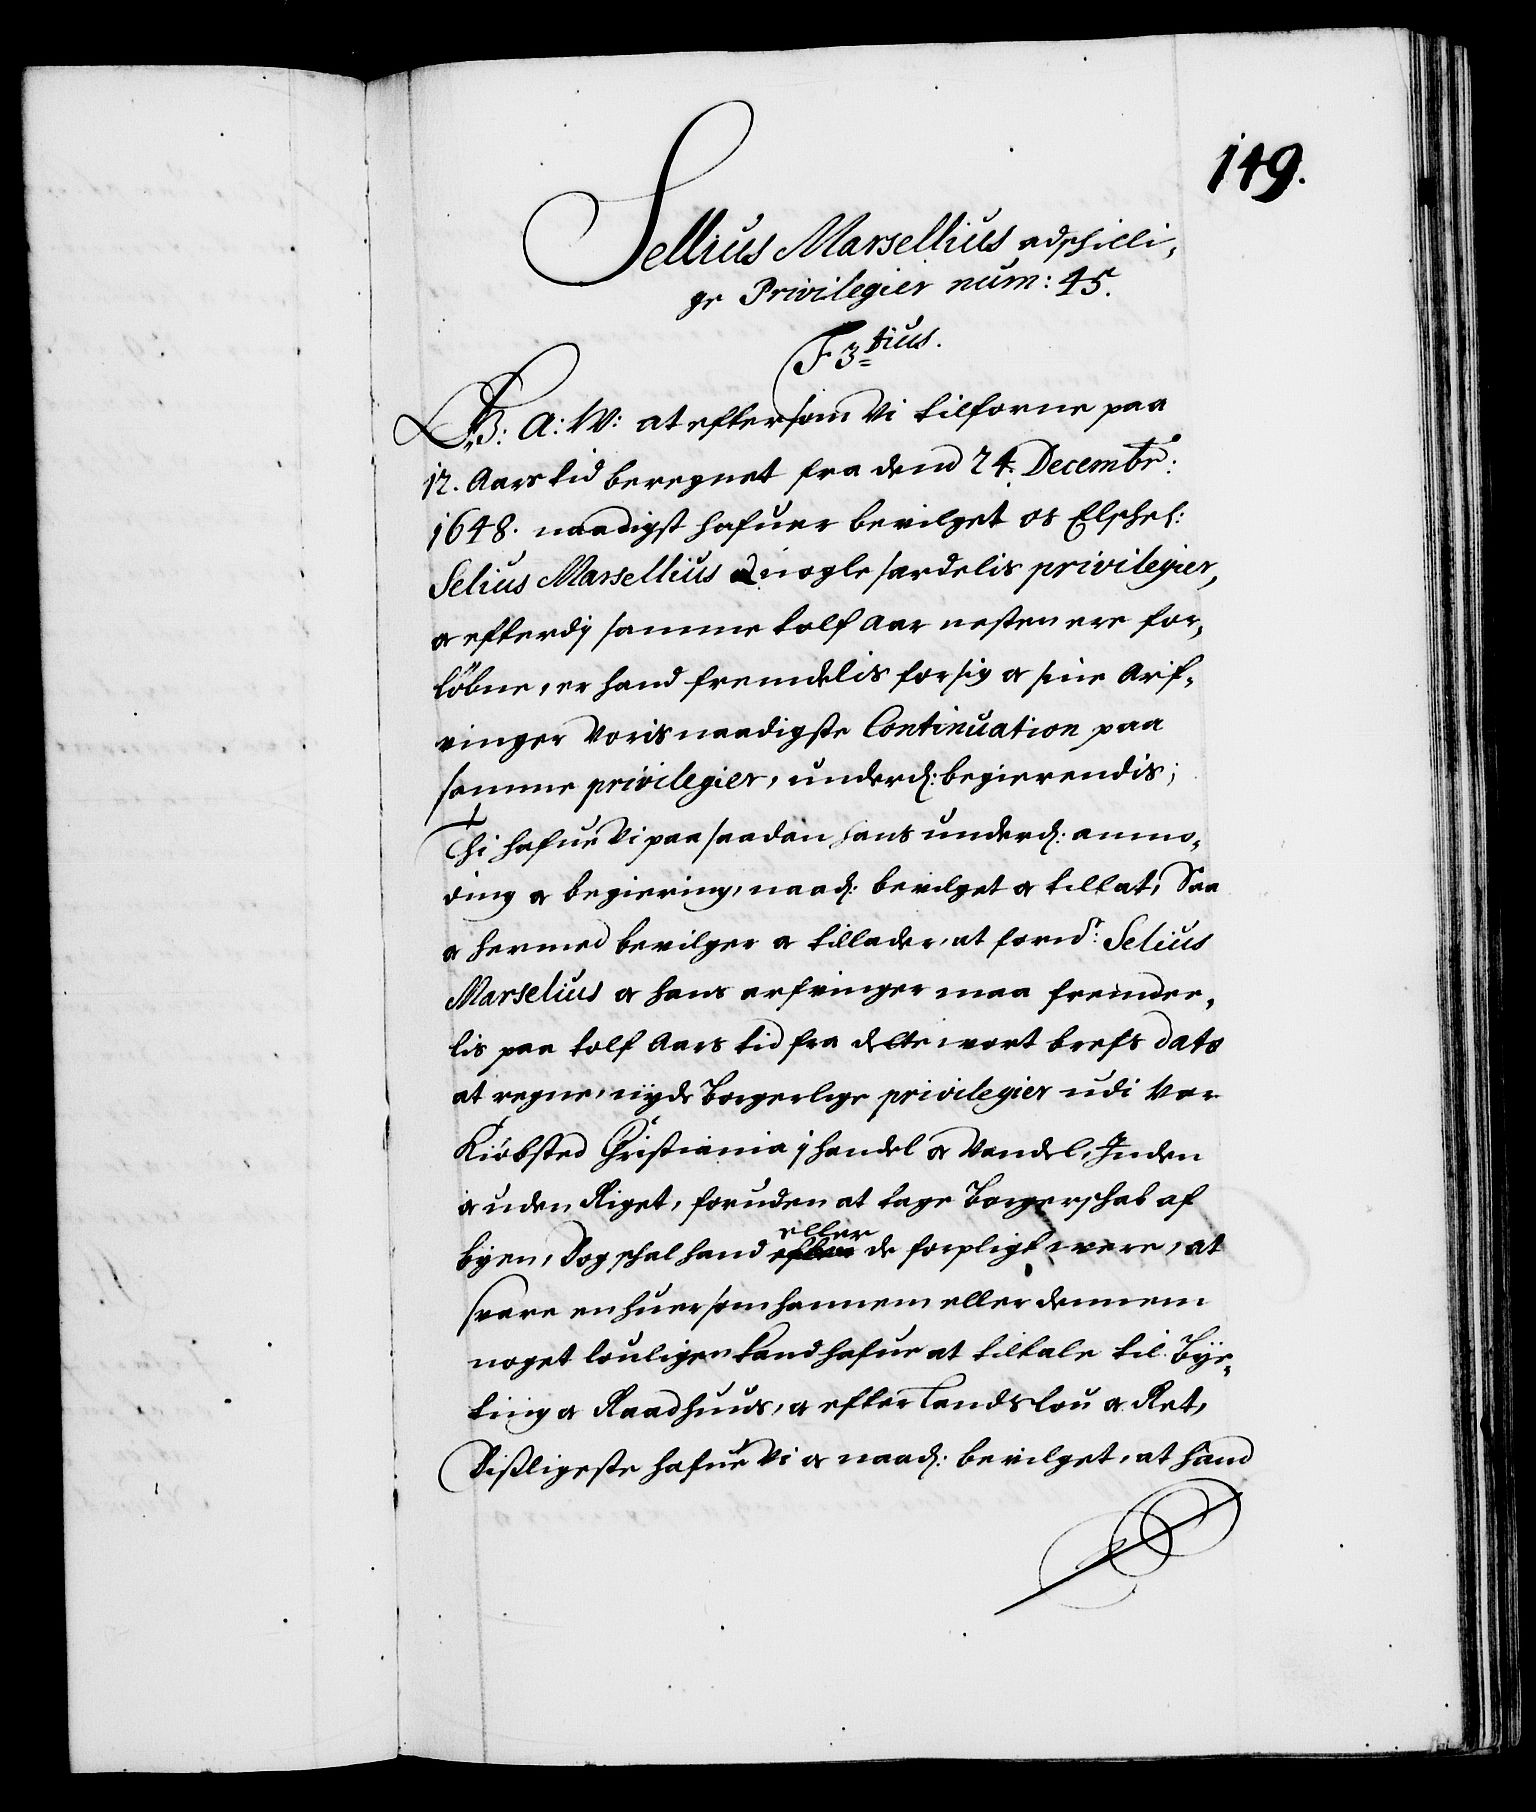 149.
Sellius Marsellius adschilli,
ge Privilegier num: 45.
F 3tius.
G: A: W: at eftersom Vi tilforne paa
12. Aars tid beregnet fra dend 24. Decembr:
1648. naadigst hafuer bevilget os Elschel:
Selius Marsellius nogle særdelis privilegier,
oc efterdj samme tolf Aar nesten ere for,
löbne, er hand fremdelis for sig oc sine Arf,
vinger Voris naadigste Continuation paa
samme privilegier, underd: begierendis;
Thi hafue Vi paa saadan hans underd: anmo,
ding oc begiering, naad: bevilget oc tillat, Saa
oc hermed bevilger oc tillader, at formt: Selius
Marselius oc hans arfvinger maa fremdee,
lis paa tolf Aars tid fra dette vort brefs dato
at regne, nyde borgerlige privilegier udi Vor
Kiöbsted Christiania j handel oc Vandel, Inden
oc uden Riget, foruden at tage borgerschab af
byen, Dog schal hand eller de forpligt vere, at
svare en huer som hannem eller dennem
noget louligen kand hafue at tiltale til Bye,
ting oc Raadhuus, oc efter Lands lou oc Ret,
Disligeste hafue Vi oc naad: bevilget, at hand